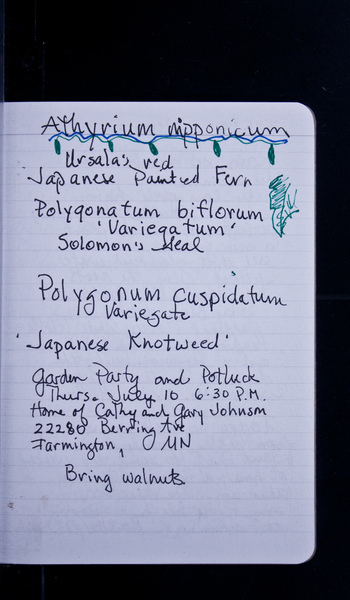 Athyrium nipponicum
Ursala's red
Japanese Painted Fern
Polygonatum biflorum
'Variegatum'
Solomon's Seal
Polygonum cuspidatum
Variegate
'Japanese Knotweed'
Garden Party and Potluck
Thurs. July 10 6:30 P.M.
Home of Cathy and Gary Johnson
22280 Berring Ave
Farmington, MN
Bring walnuts